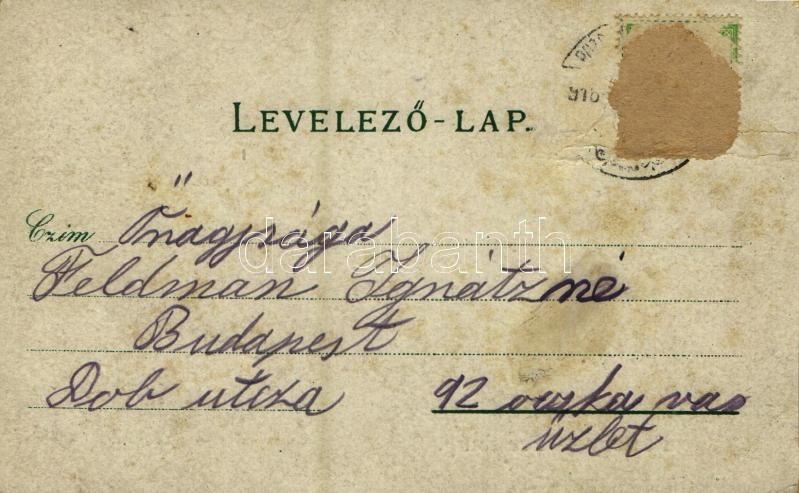 LEVELEZŐ-LAP.
Czim Őnagysága
Feldman Ignátzné
Budapest
Dob utcza 92 ocska vas
üzlet
darabanth